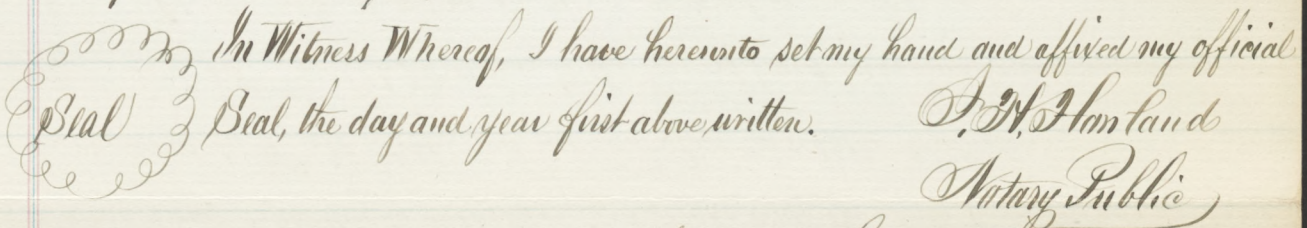 In Witness Whereof, I have hereunto set my hand and affixed my official
Seal Seal, the day and year first above written.
Notary Public